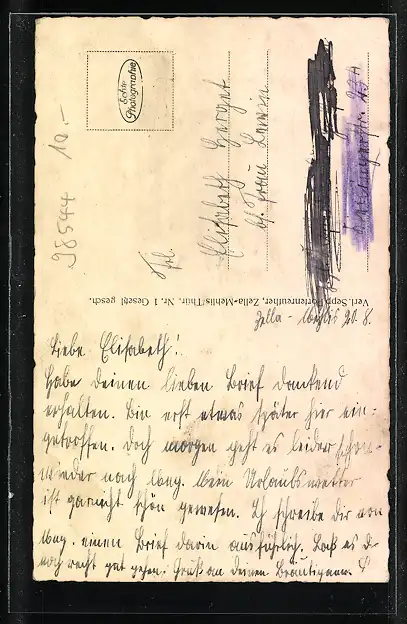 98544 10.-
Echte
Photographie
Frl.
Elisabeth Herzet
b/ Frau Lewin
Verl. Sepp Portenreuther, Zella-Mehlis/Thür. Nr. 1 Gesetzl gesch.
Zella-Mehlis 20. 8.
Liebe Elisabeth!
Habe deinen lieben Brief dankend
erhalten. Bin erst etwas später hier ein-
getroffen. Doch morgen geht es leider schon
wieder nach Mbg. Mein Urlaubswetter
ist garnicht schön gewesen. Ich schreibe dir von
Mbg. einen Brief darin ausführlich. Laß es dir
noch recht gut gehen. Gruß an deinen Bräutigam.